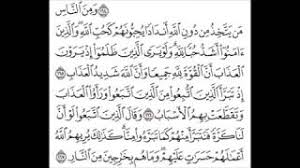 ۝١٦٤ وَمِنَ ٱلنَّاسِ
مَن يَتَّخِذُ مِن دُونِ ٱللَّهِ أَندَادًا يُحِبُّونَهُمْ كَحُبِّ ٱللَّهِ وَٱلَّذِينَ
ءَامَنُوٓا۟ أَشَدُّ حُبًّا لِّلَّهِ وَلَوْ يَرَى ٱلَّذِينَ ظَلَمُوٓا۟ إِذْ يَرَوْنَ
ٱلْعَذَابَ أَنَّ ٱلْقُوَّةَ لِلَّهِ جَمِيعًا وَأَنَّ ٱللَّهَ شَدِيدُ ٱلْعَذَابِ ۝١٦٥
إِذْ تَبَرَّأَ ٱلَّذِينَ ٱتُّبِعُوا۟ مِنَ ٱلَّذِينَ ٱتَّبَعُوا۟ وَرَأَوُا۟ ٱلْعَذَابَ
وَتَقَطَّعَتْ بِهِمُ ٱلْأَسْبَابُ ۝١٦٦ وَقَالَ ٱلَّذِينَ ٱتَّبَعُوا۟ لَوْ أَنَّ
لَنَا كَرَّةً فَنَتَبَرَّأَ مِنْهُمْ كَمَا تَبَرَّءُوا۟ مِنَّا كَذَٰلِكَ يُرِيهِمُ ٱللَّهُ
أَعْمَٰلَهُمْ حَسَرَٰتٍ عَلَيْهِمْ وَمَا هُم بِخَٰرِجِينَ مِنَ ٱلنَّارِ ۝١٦٧